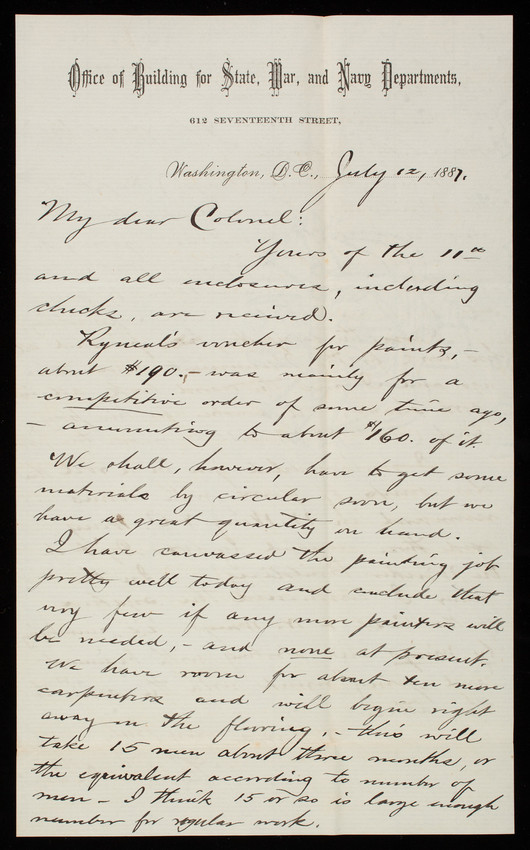 Office of Building for State, War, and Navy Departments,
612 SEVENTEENTH STREET,
Washington, D.C., July 12, 1887.
My dear Colonel:
Yours of the 11th
and all enclosures, including
checks, are received.
Ryneal's voucher for paints, –
about $190. – was mainly for a
competitive order of some time ago,
– amounting to about $160. of it.
We shall, however, have to get some
materials by circular soon, but we
have a great quantity on hand.
I have canvassed the painting job
pretty well today and conclude that
very few if any more painters will
be needed, – and none at present.
We have room for about ten more
carpenters and will begin right
away on the flooring, – this will
take 15 men about three months, or
the equivalent according to number of
men – I think 15 or so is large enough
number for regular work.